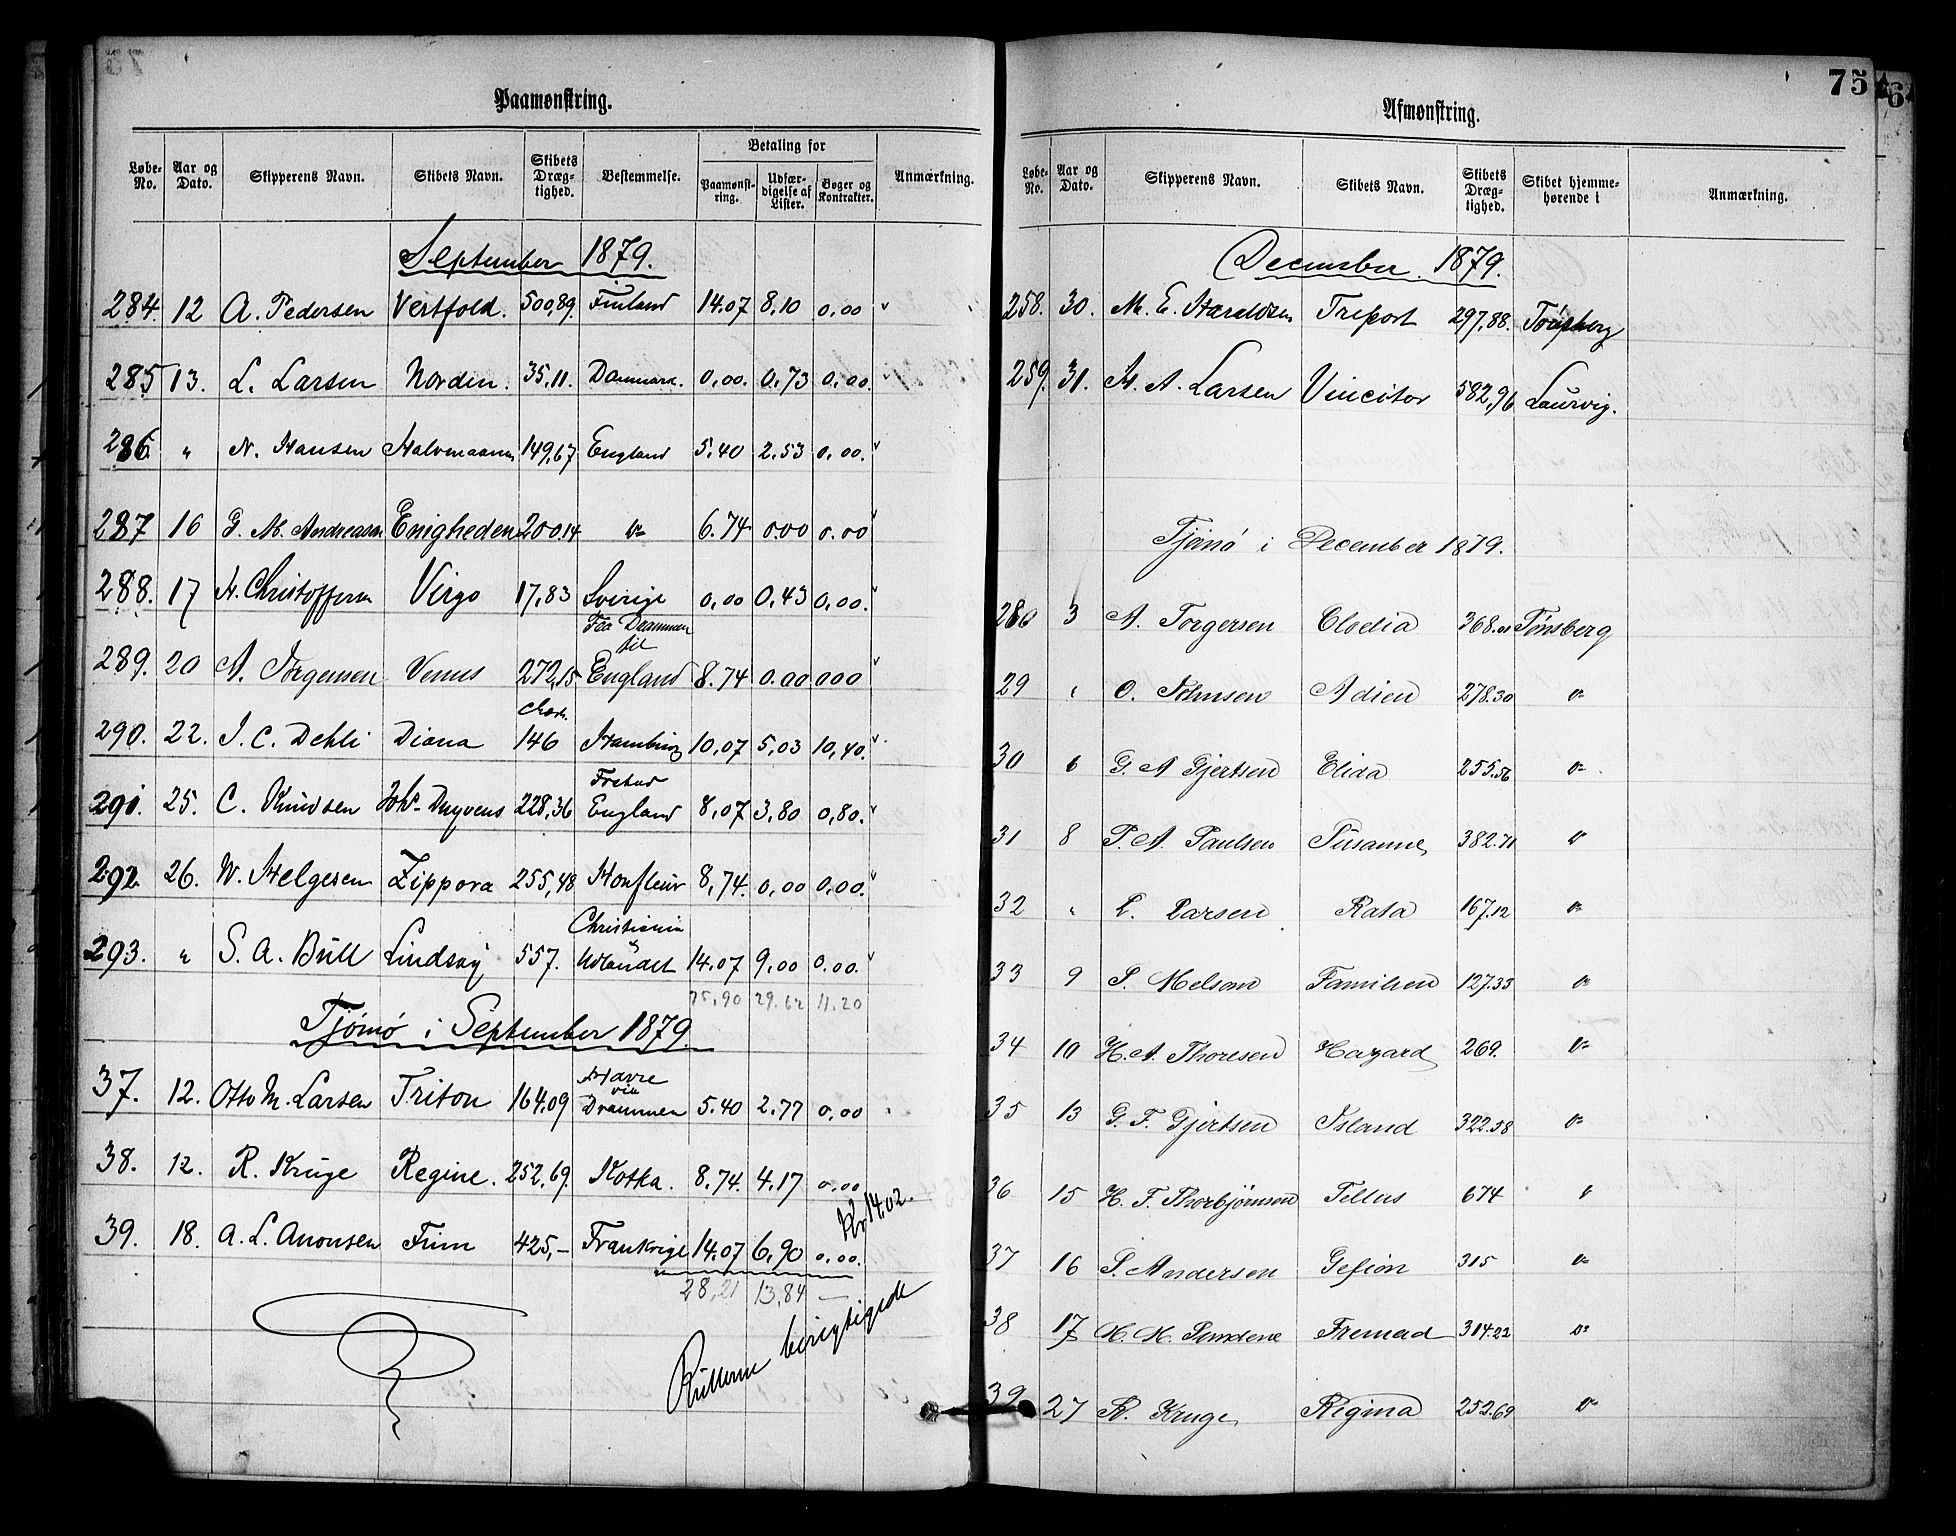 Paamønstring.
Løbe-No. Aar og Dato. Skipperens Navn. Skibets Navn. Skibets Drægtighed. Bestemmelse. Betaling for Anmærkning.
Paamønstring. Udfærdigelse af Lister. Bøger og Kontrakter.
September 1879.
284. 12 A. Pedersen Vestfold. 500,89. Finland 14.07 8,10 0,00 v
285 13. L. Larsen Norden. 35,11. Danmark. 0,00. 0,73 0,00. v
286. " N. Hansen Halvmaanen 149,67 England 5,40 2.53 0,00. v
287 16 G. M. Andreassen Enigheden 200.14 do 6.74 0.00 0.00 v
288. 17 H. Christoffersen Virgo 17,83 Sverige 0,00 0,43 0,00. v
Fra Drammen
til
289. 20 A. Jørgensen Venus 272,15 England 8.74 0.00 000 v
290. 22. J. C. Dehli Diana 146 Hamburg 10,07 5,03 10,40. v
291. 25. C. Knudsen 228,36 England 8,07 3,80 0,80. v
292. 26. W. Helgesen Zippora 255,48 Honfleur 8,74. 0,00 0,00. v
Christiania
293. " S. A. Bull Lindsay 557. Udlandet 14.07 9,00 0.00. v
75,90 29.62 11.20
Tjømø i September 1879.
Havre
via
37. 12. Otto M. Larsen Triton 164.09 Drammen 5.40 2.77 0,00
38. 12. R. Kruge Regine. 252,69. Kotka. 8.74. 4.17 0,00
39. 18. A. L. Anonsen Finn 425,- Frankrige 14.07 6,90 0,00.
Kr 14.02.
28,21 13,84 —
berigtigede
75
Afmønstring.
Løbe-No. Aar og Dato. Skipperens Navn. Skibets Navn. Skibets Drægtighed. Skibet hjemmehørende i Anmærkning.
December. 1879.
258. 30. M. E. Haraldsen Treport 297,88. Tønsberg
259. 31. H. A. Larsen Vincitor 582,96 Laurvig.
Tjømø i December 1879.
280 3 A. Torgersen Clodia 368.01 Tønsberg
29 " O. Johnsen Adien 278.30 do
30 6 G. A Gjertsen Elida 255.56 do
31 8 P. A. Paulsen Susanne 382.71 do
32 " L. Larsen Rata 167.12 do
33 9 S. Melsom Familien 127.33 do
34 10 H. A. Thoresen Hazard 269. do
35 13 G. F. Gjertsen Island 322.58 do
36 15 H. F. Thorbjörnsen Tellus 674 "
37 16 S. Andersen Gefion 315 do
38 17 H. M. Sundene Fremad 314.22 do
39 27 R. Kruge Regina 252.69 do